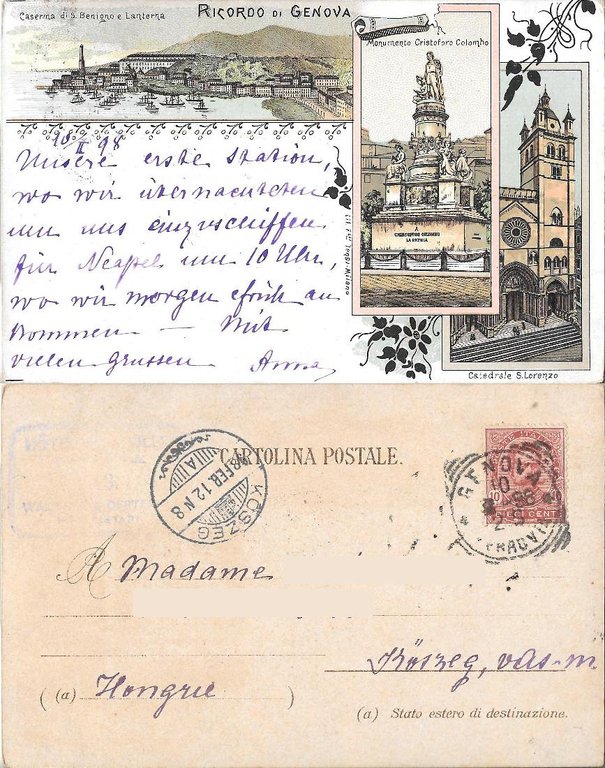 RICORDO DI GENOVA
Caserma di S. Benigno e Lanterna
Monumento Cristoforo Colombo
A
CRISTOFORO COLOMBO
LA PATRIA
Catedrale S. Lorenzo
10/II 98
Unsere erste Station,
wo wir übernachteten
um uns einzuschiffen
für Neapel um 10 Uhr,
wo wir morgen früh an
kommen — Mit
vielen Grussen Anna
CARTOLINA POSTALE.
KŐSZEG
98 FEB 12 N 8
GENOVA
10
2
98
10
DIECI CENT
A Madame
Kőszeg, Vas-m
(a) Hongrie )
(a) Stato estero di destinazione.